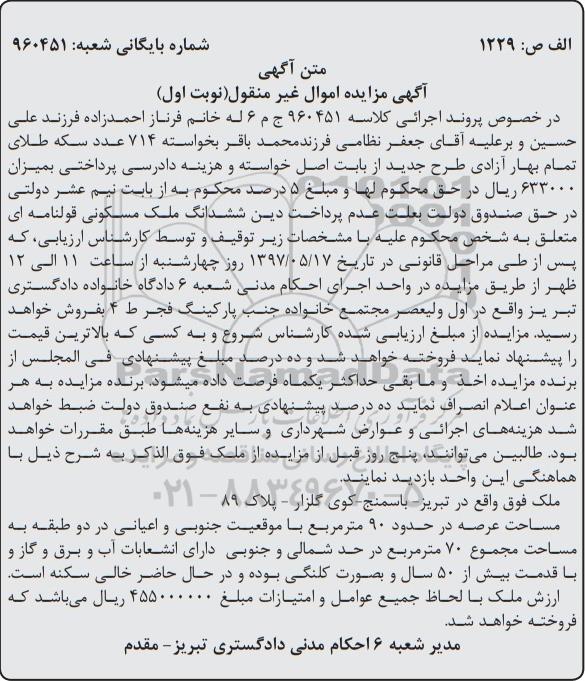 الف ص: ۱۲۲۹
شماره بایگانی شعبه: ۹۶۰۴۵۱
متن آگهی
آگهی مزایده اموال غیر منقول(نوبت اول)
در خصوص پروند اجرائی کلاسه ۹۶۰۴۵۱ ج م ۶ له خانم فرناز احمدزاده فرزند علی
حسین و برعلیه آقای جعفر نظامی فرزندمحمد باقر بخواسته ۷۱۴ عدد سکه طلای
تمام بهار آزادی طرح جدید از بابت اصل خواسته و هزینه دادرسی پرداختی بمیزان
۶۳۳۰۰۰ ریال در حق محکوم لها و مبلغ ۵ درصد محکوم به از بابت نیم عشر دولتی
در حق صندوق دولت بعلت عدم پرداخت دین ششدانگ ملک مسکونی قولنامه ای
متعلق به شخص محکوم علیه با مشخصات زیر توقیف و توسط کارشناس ارزیابی، که
پس از طی مراحل قانونی در تاریخ ۱۳۹۷/۰۵/۱۷ روز چهارشنبه از ساعت ۱۱ الی ۱۲
ظهر از طریق مزایده در واحد اجرای احکام مدنی شعبه ۶ دادگاه خانواده دادگستری
تبریز واقع در اول ولیعصر مجتمع خانواده جنب پارکینگ فجر ط ۴ بفروش خواهد
رسید. مزایده از مبلغ ارزیابی شده کارشناس شروع و به کسی که بالاترین قیمت
را پیشنهاد نماید فروخته خواهد شد و ده درصد مبلغ پیشنهادی فی المجلس از
برنده مزایده اخذ و ما بقی حداکثر یکماه فرصت داده میشود. برنده مزایده به هر
عنوان اعلام انصراف نماید ده درصد پیشنهادی به نفع صندوق دولت ضبط خواهد
شد هزینه‌های اجرائی و عوارض شهرداری و سایر هزینه‌ها طبق مقررات خواهد
بود. طالبین می‌توانند پنج روز قبل از مزایده از ملک فوق الذکر به شرح ذیل با
هماهنگی این واحد بازدید نمایند.
ملک فوق واقع در تبریز- باسمنج-کوی گلزار- پلاک ۸۹
مساحت عرصه در حدود ۹۰ مترمربع با موقعیت جنوبی و اعیانی در دو طبقه به
مساحت مجموع ۷۰ مترمربع در حد شمالی و جنوبی دارای انشعابات آب و برق و گاز و
با قدمت بیش از ۵۰ سال و بصورت کلنگی بوده و در حال حاضر خالی سکنه است.
ارزش ملک با لحاظ جمیع عوامل و امتیازات مبلغ ۴۵۵۰۰۰۰۰۰ ریال می‌باشد که
فروخته خواهد شد.
مدیر شعبه ۶ احکام مدنی دادگستری تبریز- مقدم
ParsNamadData
۰۲۱-۸۸۳۴۹۶۷۰-۵